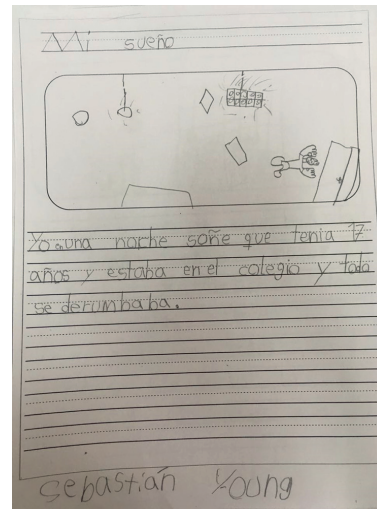 Mi sueño
Yo una noche soñe que tenia 17
años y estaba en el colegio y todo
se derumbaba.
Sebastián Young